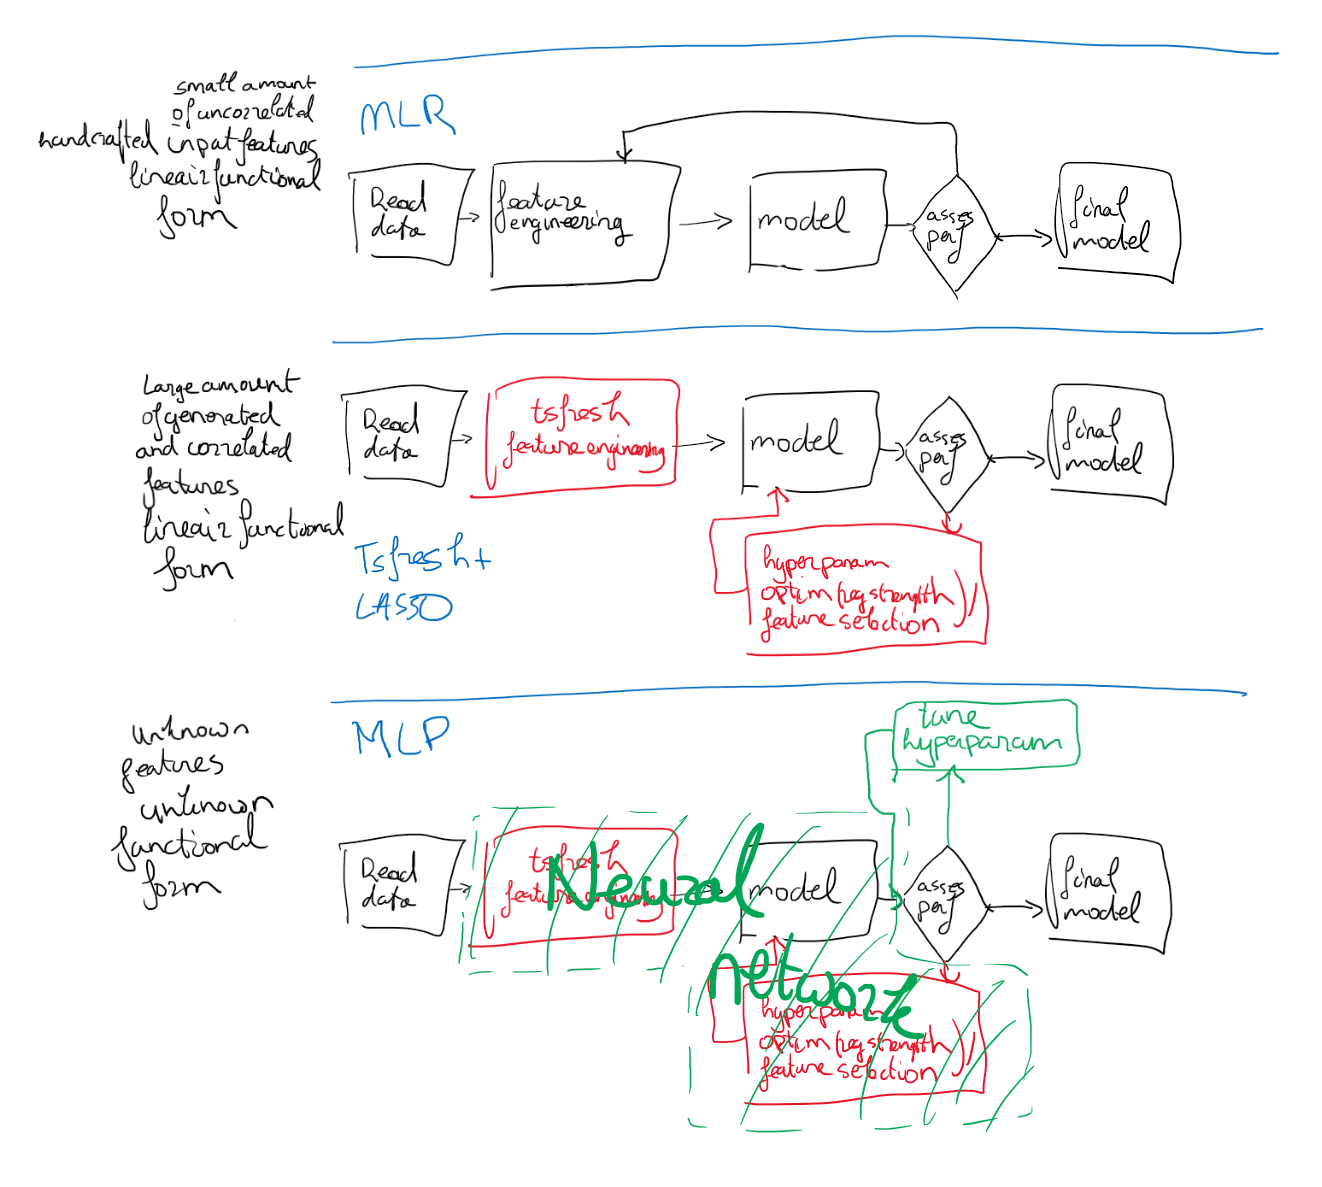 small amount
of uncorrelated
handcrafted input features
lineair functional
form
MLR
Read
data
feature
engineering
model
asses
perf
final
model
Large amount
of generated
and correlated
features
lineair functional
form
Tsfresh+
LASSO
Read
data
tsfresh
feature engineering
model
asses
perf
final
model
hyperparam
optim (reg strength)/
feature selection
unknown
features
unknown
functional
form
MLP
tune
hyperparam
Read
data
tsfresh
feature engineering
Neural
network
model
asses
perf
final
model
hyperparam
optim (reg strength)/
feature selection